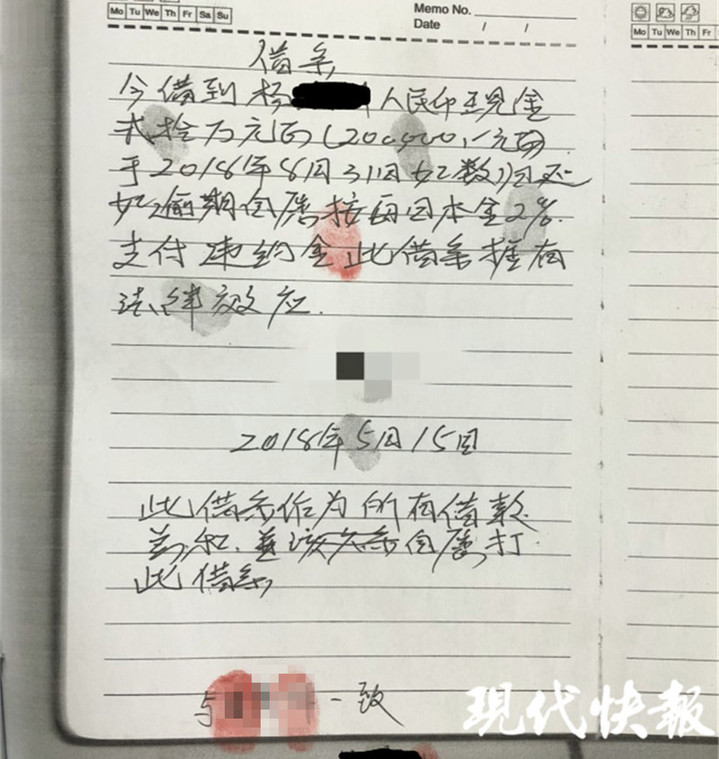 Mo Tu We Th Fr Sa Su
Memo No.
Date / /
Mo Tu We Th Fr
借条
今借到杨 人民币现金
贰拾万元的(200,000,/元的
于2018年8月31日如数归还
如逾期自愿按每日本金2%
支付违约金此借条拥有
法律效应.
2018年5月15日
此借条作为所有借款
总和.并该欠条自愿打
此借条
与 一致
现代快报